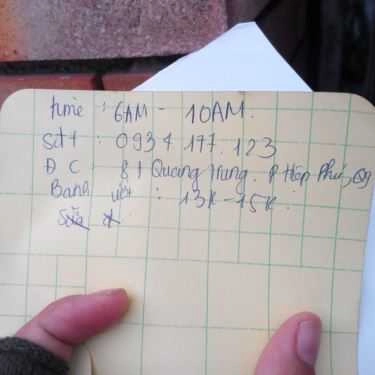 time : 6AM - 10AM.
sđt : 0937 177.123
ĐC : 81 Quang Trung. P Hiệp Phú, Q9
Bánh ướt : 13k - 15k.